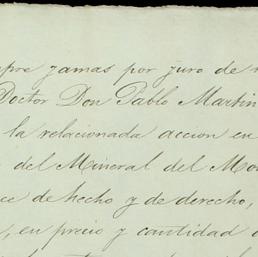 pre jamas por juro de
Doctor Don Pablo Martin
la relacionada accion en
del Mineral del Mo
ce de hecho y de derecho,
, en precio y cantidad